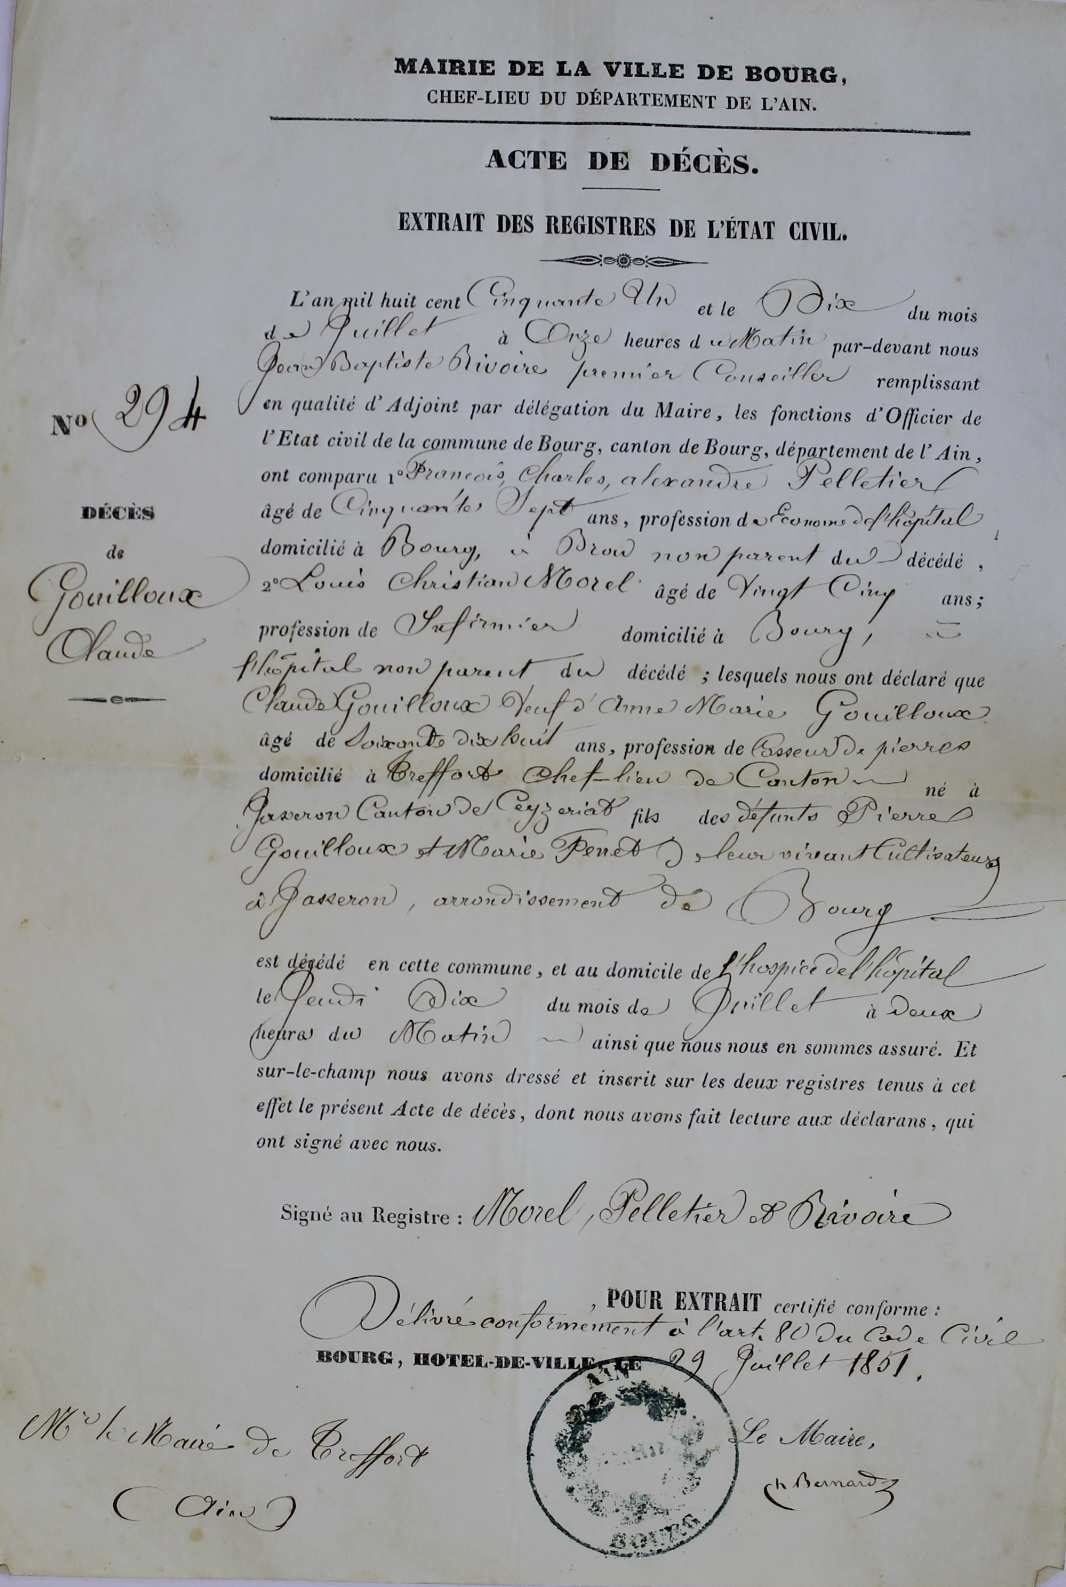 MAIRIE DE LA VILLE DE BOURG,
CHEF-LIEU DU DÉPARTEMENT DE L'AIN.
ACTE DE DÉCÈS.
EXTRAIT DES REGISTRES DE L'ÉTAT CIVIL.
L'an mil huit cent Cinquante Un et le Dix du mois
de Juillet à Onze heures du Matin par-devant nous
Jean Baptiste Rivoire premier Conseiller remplissant
en qualité d'Adjoint par délégation du Maire, les fonctions d'Officier de
l'Etat civil de la commune de Bourg, canton de Bourg, département de l'Ain,
ont comparu 1° François, Charles, alexandre Pelletier
âgé de Cinquante Sept ans, profession de Econome de l'hôpital
domicilié à Bourg, à Brou non parent du décédé,
2° Louis Christian Morel âgé de Vingt Cinq ans;
profession de Infirmier domicilié à Bourg, à
l'hôpital non parent du décédé; lesquels nous ont déclaré que
Claude Gouilloux Veuf d'Anne Marie Gouilloux
âgé de Soixante dix huit ans, profession de Casseur de pierres
domicilié à Treffort Chef-lieu de Canton né à
Jasseron Canton de Ceyzeriat fils des défunts Pierre
Gouilloux et Marie Fenet de leur vivant Cultivateurs
à Jasseron, arrondissement de Bourg
est décédé en cette commune, et au domicile de l'hospice de l'hôpital
le Jeudi Dix du mois de Juillet à deux
heures du Matin ainsi que nous nous en sommes assuré. Et
sur-le-champ nous avons dressé et inscrit sur les deux registres tenus à cet
effet le présent Acte de décès, dont nous avons fait lecture aux déclarans, qui
ont signé avec nous.
No 294
DÉCÈS
de
Gouilloux
Claude
Signé au Registre : Morel, Pelletier et Rivoire
POUR EXTRAIT certifié conforme :
Délivré conformément à l'art. 80 du Code Civil
BOURG, HOTEL-DE-VILLE, LE 29 Juillet 1851.
AIN
BOURG
Le Maire,
Ch Bernard
Mr le Maire de Treffort
(Ain)